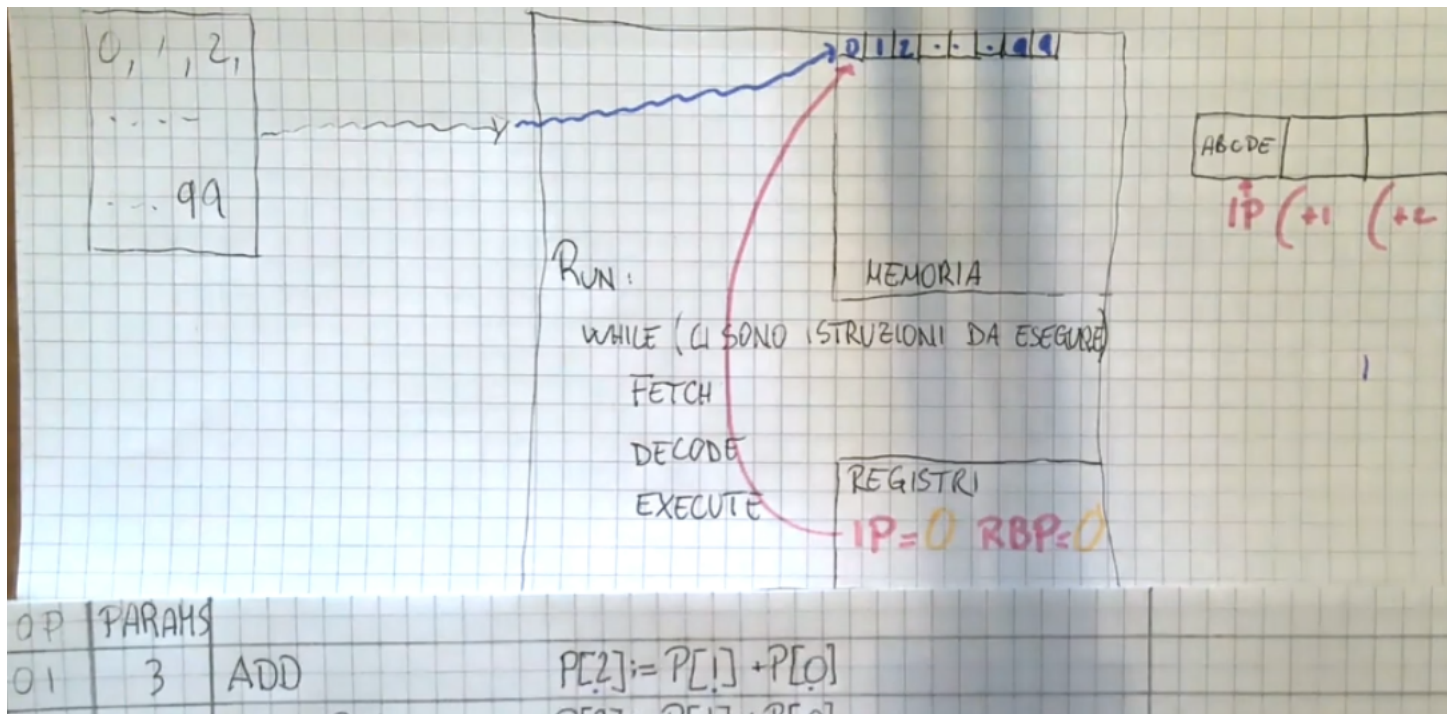 0, 1, 2,
. . . -
. . . 99
0 1 2 . . . 99
MEMORIA
ABCDE
IP (+1 (+2
RUN:
WHILE (CI SONO ISTRUZIONI DA ESEGURE)
FETCH
DECODE
EXECUTE
REGISTRI
IP=0 RBP=0
OP PARAMS
01 3 ADD P[2]:= P[1] + P[0]